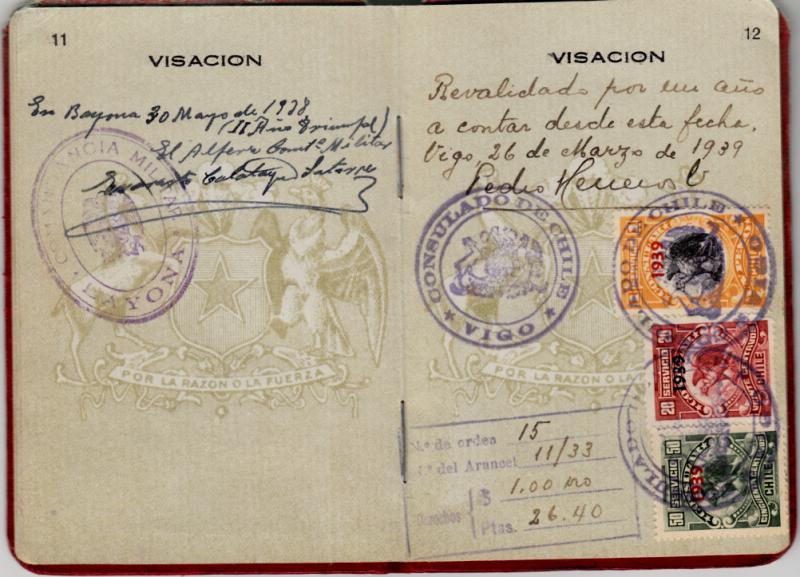 11
VISACION
En Bayona 30 Mayo de 1938
(II Año Triunfal)
El Alferez Comte Militar
COMANDANCIA MILITAR
BAYONA
POR LA RAZON O LA FUERZA
12
VISACION
Revalidado por un año
a contar desde esta fecha.
Vigo, 26 de Marzo de 1939
Pedro
CONSULADO DE CHILE
VIGO
POR LA RAZON O LA FUERZA
DE CHILE
1939
20 SERVICIO 20
1939
CHILE
50 SERVICIO 50
1939
CHILE
Nº de orden 15
Nº del Arancel 11/33
Derechos
$ 1.00 oro
Ptas. 26.40